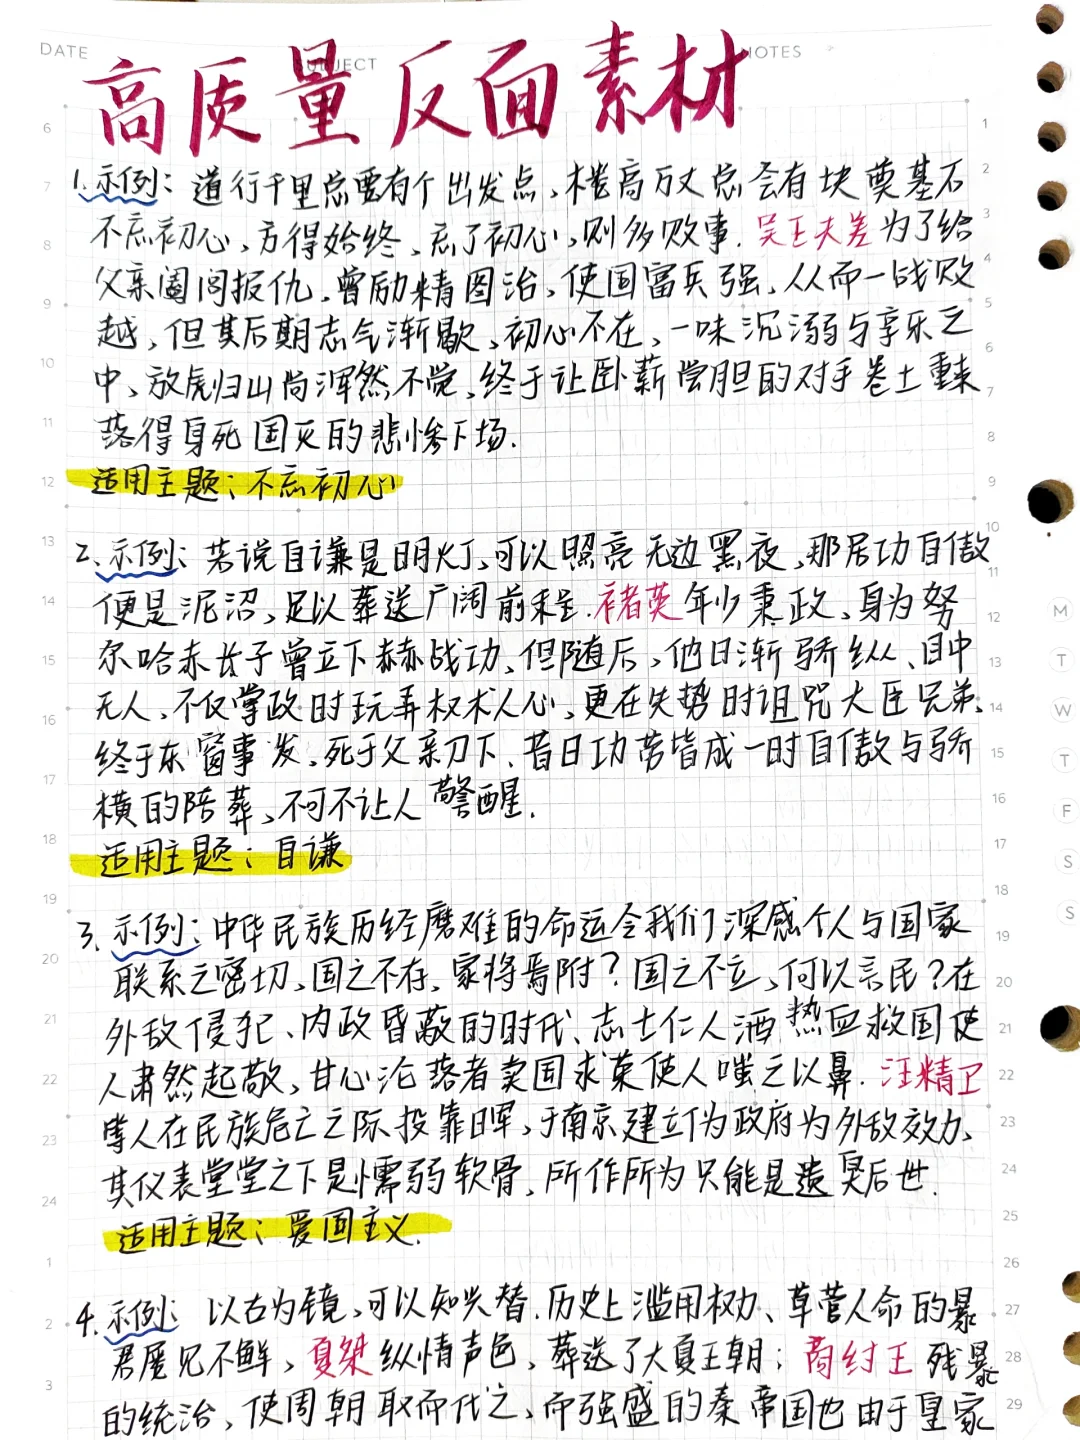 DATE
SUBJECT
NOTES
高质量反面素材
1.示例：道行千里总要有个出发点，楼高万丈总会有块奠基石
不忘初心，方得始终，忘了初心，则多败事.吴王夫差为了给
父亲阖闾报仇，曾励精图治，使国富兵强，从而一战败
越，但其后期志气渐歇，初心不在，一味沉溺与享乐之
中，放虎归山尚浑然不觉，终于让卧薪尝胆的对手卷土重来
落得身死国灭的悲惨下场.
适用主题：不忘初心
2.示例：若说自谦是明灯，可以照亮无边黑夜，那居功自傲
便是泥沼，足以葬送广阔前程.褚英年少秉政，身为努
尔哈赤长子曾立下赫赫战功，但随后，他日渐骄纵、目中
无人，不仅掌政时玩弄权术人心，更在失势时诅咒大臣兄弟，
终于东窗事发，死于父亲刀下.昔日功劳皆成一时自傲与骄
横的陪葬，不可不让人警醒.
适用主题：自谦
3.示例：中华民族历经磨难的命运令我们深感个人与国家
联系之密切，国之不存，家将焉附？国之不立，何以言民？在
外敌侵犯、内政昏蔽的时代，志士仁人洒热血救国使
人肃然起敬，甘心沦落者卖国求荣使人嗤之以鼻.汪精卫
等人在民族危亡之际投靠日军，于南京建立伪政府为外敌效力，
其仪表堂堂之下是懦弱软骨，所作所为只能是遗臭后世.
适用主题：爱国主义.
4.示例：以古为镜，可以知兴替.历史上滥用权力、草菅人命的暴
君屡见不鲜，夏桀纵情声色，葬送了大夏王朝；商纣王残暴
的统治，使周朝取而代之，而强盛的秦帝国也由于皇家